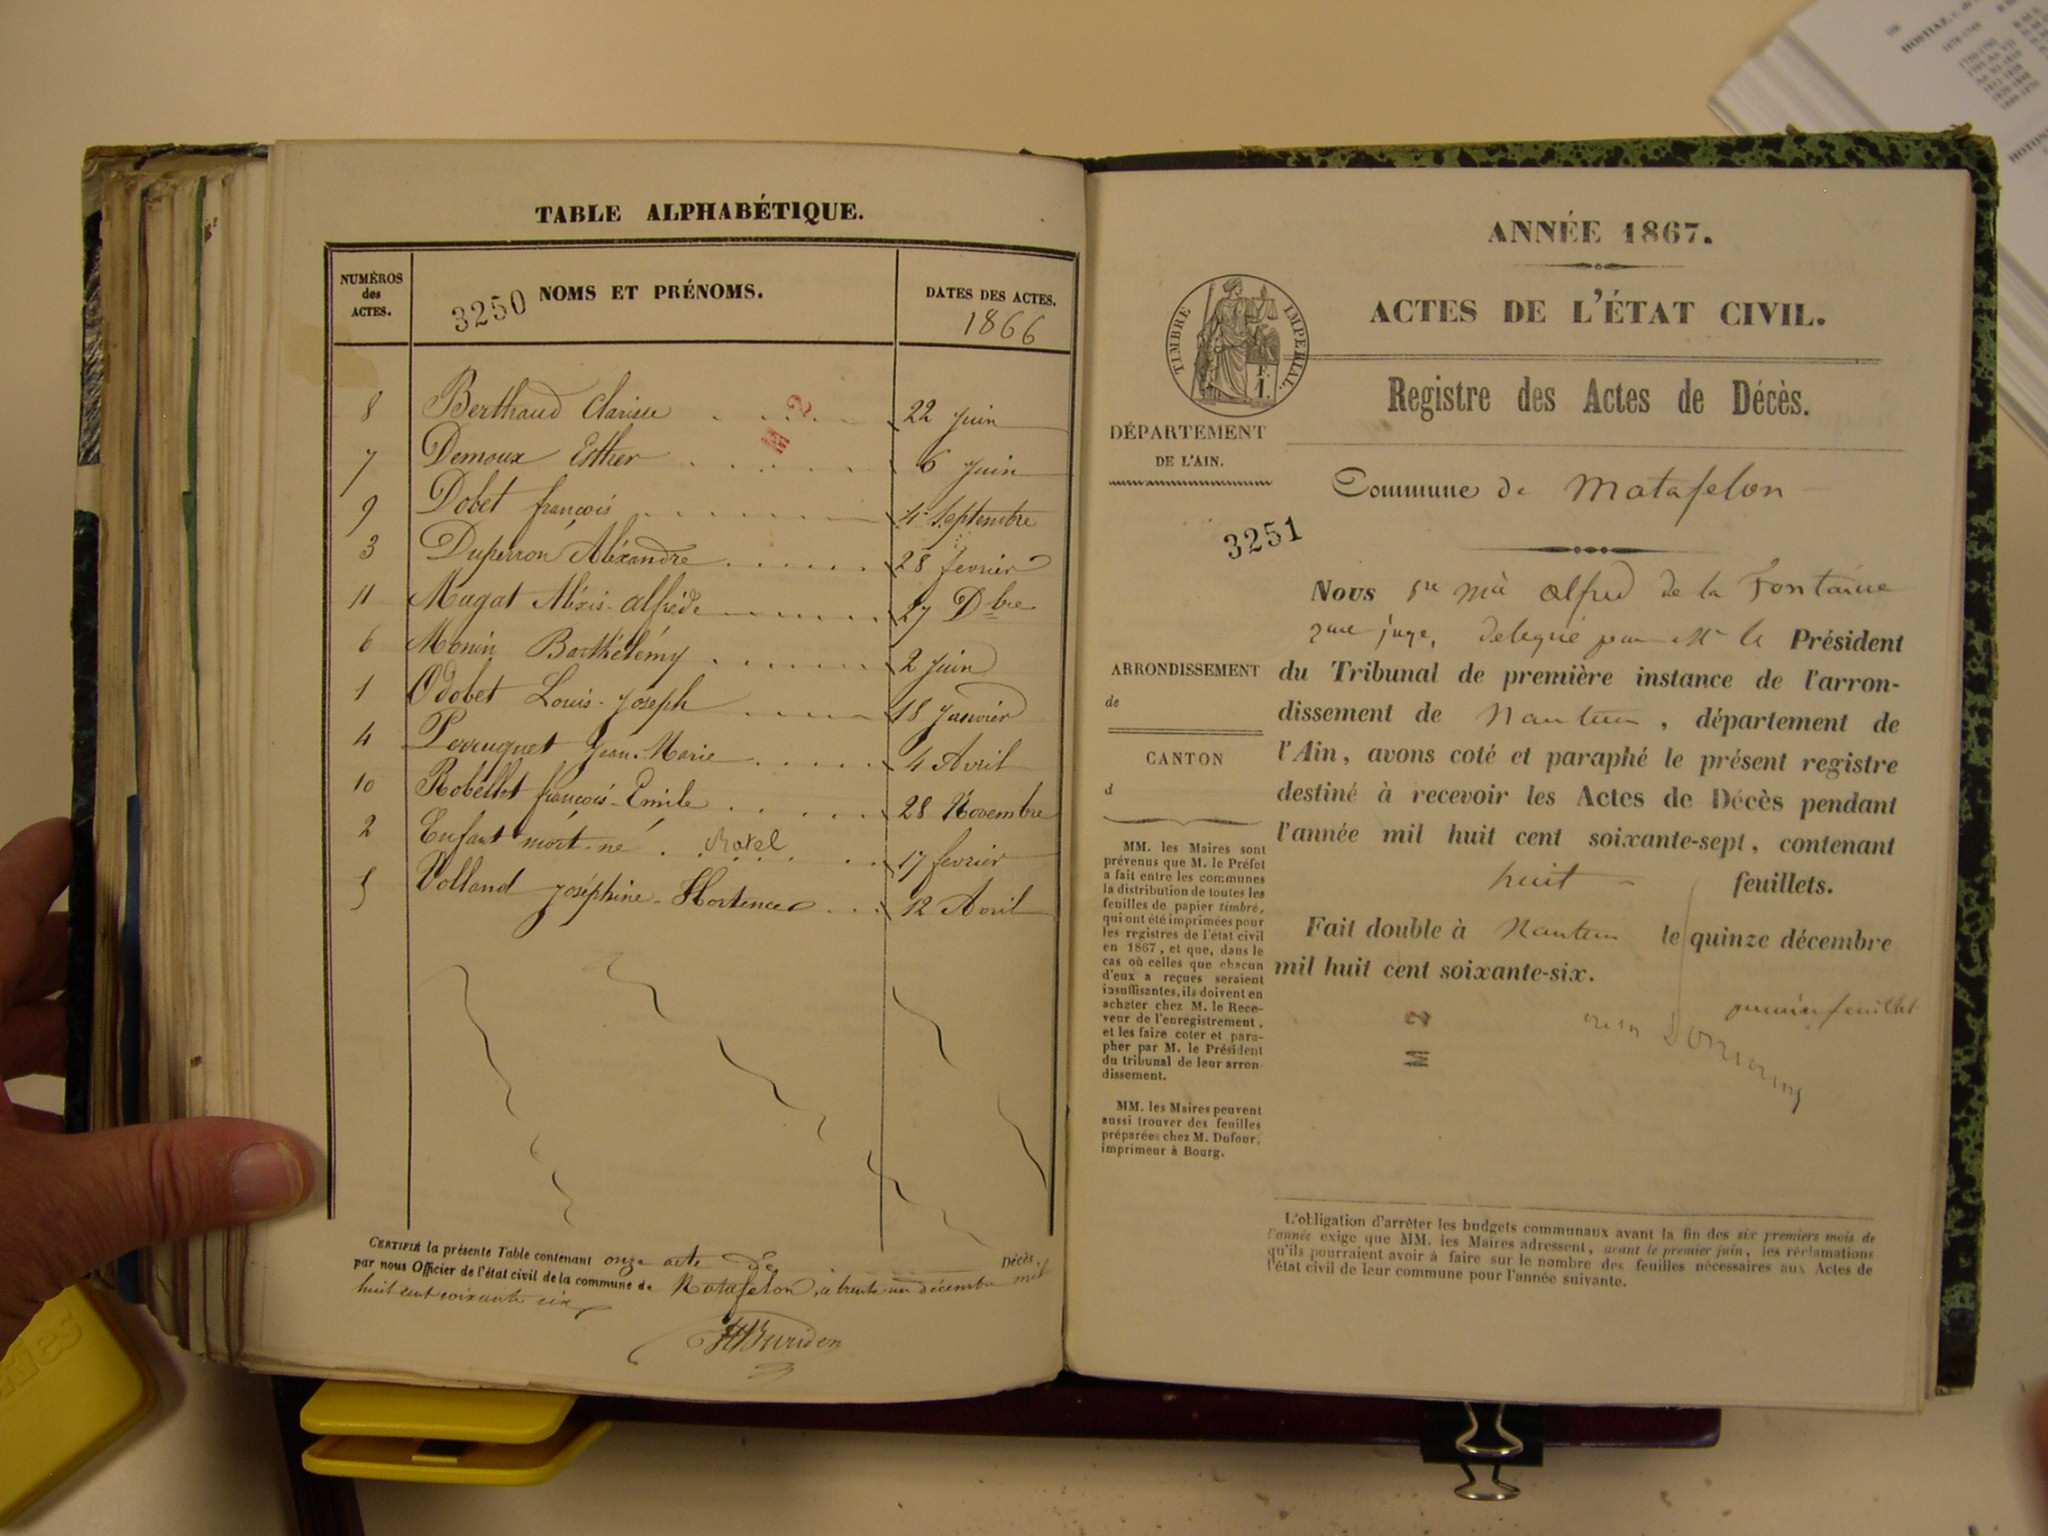 TABLE ALPHABÉTIQUE.
NUMÉROS des ACTES.
3250 NOMS ET PRÉNOMS.
DATES DES ACTES.
1866
8 Berthaud Clarisse 22 Juin
7 Demoux Esther 6 Juin
9 Dobet françois 4 Septembre
3 Duperron Aléxandre 28 fevrier
11 Mugat Aléxis-alfréde 27 Dbre
6 Monin Barthélémy 2 Juin
1 Odobet Louis-Joseph 18 Janvier
4 Perruquet Jean-Marie 4 Avril
10 Robellot françois-Emile 28 Novembre
2 Enfant mort-né 17 fevrier
5 Volland Joséphine-Hortence 12 Avril
M 2
CERTIFIÉ la présente Table contenant onze acte de Décès,
par nous Officier de l'état civil de la commune de Matafelon, a trente un décembre mil
huit cent soixante six
ANNÉE 1867.
ACTES DE L'ÉTAT CIVIL.
TIMBRE IMPERIAL.
Registre des Actes de Décès.
DÉPARTEMENT
DE L'AIN.
Commune de Matafelon
3251
Nous alfred de la Fontaine
juge, delegué par Mr le Président
du Tribunal de première instance de l'arron-
dissement de Nantua, département de
l'Ain, avons coté et paraphé le présent registre
destiné à recevoir les Actes de Décès pendant
l'année mil huit cent soixante-sept, contenant
huit feuillets.
Fait double à Nantua le quinze décembre
mil huit cent soixante-six.
premier feuillet
M 2
ARRONDISSEMENT
de
CANTON
d
MM. les Maires sont
prévenus que M. le Préfet
a fait entre les communes
la distribution de toutes les
feuilles de papier timbré,
qui ont été imprimées pour
les registres de l'état civil
en 1867, et que, dans le
cas où celles que chacun
d'eux a reçues seraient
insuffisantes, ils doivent en
acheter chez M. le Rece-
veur de l'enregistrement,
et les faire coter et para-
pher par M. le Président
du tribunal de leur arron-
dissement.
MM. les Maires peuvent
aussi trouver des feuilles
préparées chez M. Dufour,
imprimeur à Bourg.
L'obligation d'arrêter les budgets communaux avant la fin des six premiers mois de
l'année exige que MM. les Maires adressent, avant le premier juin, les réclamations
qu'ils pourraient avoir à faire sur le nombre des feuilles nécessaires aux Actes de
l'état civil de leur commune pour l'année suivante.